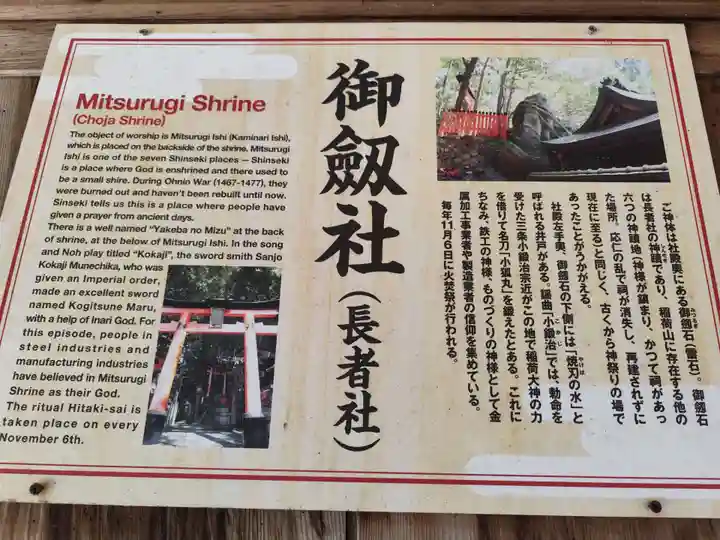 Mitsurugi Shrine
(Choja Shrine)
The object of worship is Mitsurugi Ishi (Kaminari Ishi),
which is placed on the backside of the shrine. Mitsurugi
Ishi is one of the seven Shinseki places — Shinseki
is a place where God is enshrined and there used to
be a small shire. During Ohnin War (1467-1477), they
were burned out and haven't been rebuilt until now.
Sinseki tells us this is a place where people have
given a prayer from ancient days.
There is a well named "Yakeba no Mizu" at the back
of shrine, at the below of Mitsurugi Ishi. In the song
and Noh play titled "Kokaji", the sword smith Sanjo
Kokaji Munechika, who was
given an Imperial order,
made an excellent sword
named Kogitsune Maru,
with a help of Inari God. For
this episode, people in
steel industries and
manufacturing industries
have believed in Mitsurugi
Shrine as their God.
The ritual Hitaki-sai is
taken place on every
November 6th.
御劔社(長者社)
ご神体は社殿奥にある御劔石(雷石)。御劔石
は長者社の神蹟であり、稲荷山に存在する他の
六つの神蹟地(神様が鎮まり、かつて祠があっ
た場所、応仁の乱で祠が消失し、再建されずに
現在に至る)と同じく、古くから神祭りの場で
あったことがうかがえる。
社殿左手奥、御劔石の下側には「焼刃の水」と
呼ばれる井戸がある。謡曲「小鍛冶」では、勅命を
受けた三条小鍛冶宗近がこの地で稲荷大神の力
を借りて名刀「小狐丸」を鍛えたとある。これに
ちなみ、鉄工の神様、ものづくりの神様として金
属加工事業者や製造業者の信仰を集めている。
毎年11月6日に火焚祭が行われる。